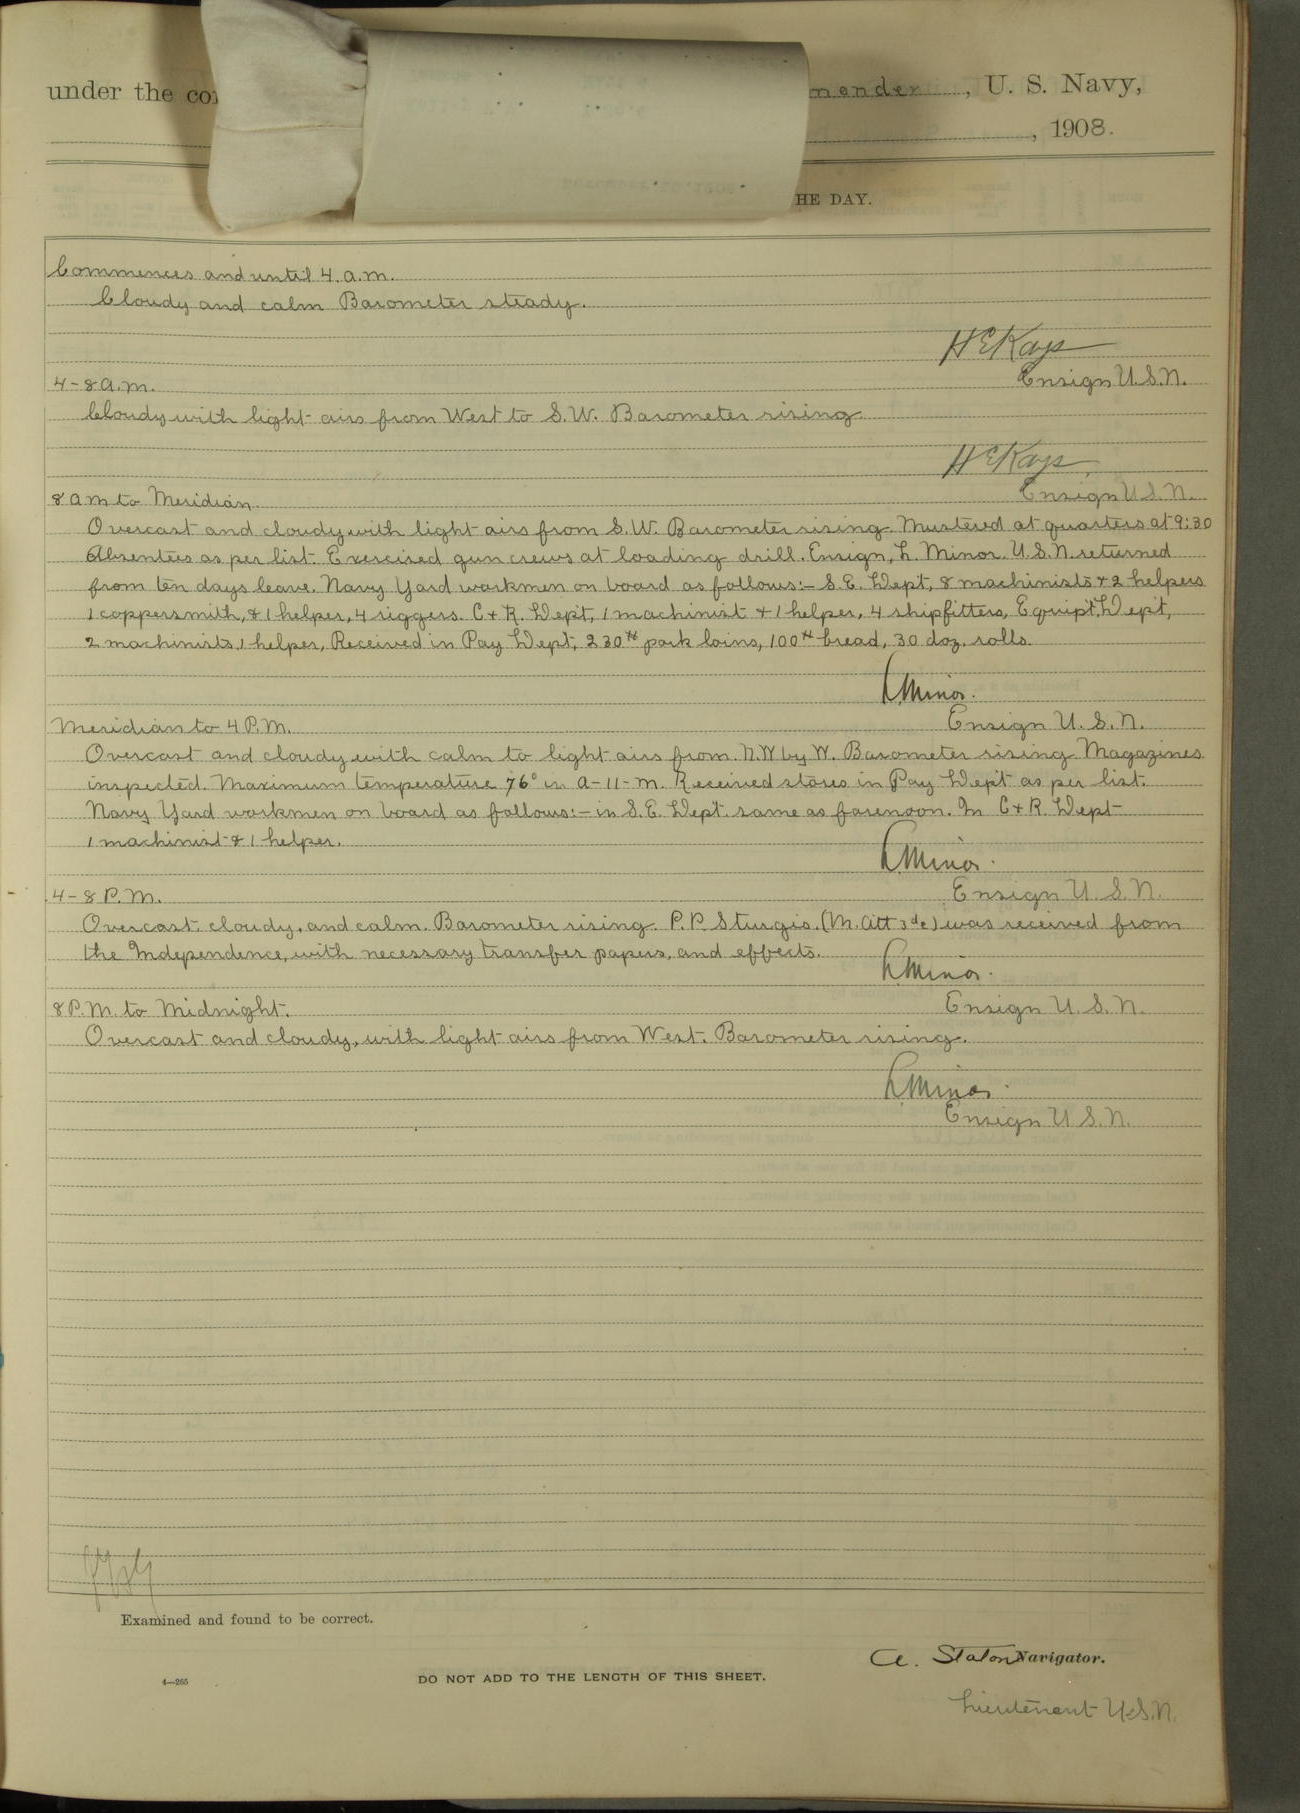 under the
mander, U. S. Navy,
, 1908.
HE DAY.
Commences and until 4. a.m.
Cloudy and calm Barometer steady.
H E Kays
Ensign U.S.N.
4-8 a.m.
Cloudy with light airs from West to S.W. Barometer rising
H E Kays
Ensign U.S.N.
8 a m to Meridian.
Overcast and cloudy with light airs from S.W. Barometer rising. Mustered at quarters at 9:30
Absentees as per list. Exercised gun crews at loading drill. Ensign, L. Minor. U.S.N. returned
from ten days leave. Navy Yard workmen on board as follows:- S.E. Dept, 8 machinists & 2 helpers
1 coppersmith, & 1 helper, 4 riggers. C & R. Dept, 1 machinist & 1 helper, 4 shipfitters, Equipt. Dept,
2 machinists, 1 helper, Received in Pay Dept, 230# pork loins, 100# bread, 30 doz. rolls.
L. Minor.
Ensign U. S. N.
Meridian to 4 P.M.
Overcast and cloudy with calm to light airs from N.W by W. Barometer rising Magazines
inspected. Maximum temperature 76° in A-11-M. Received stores in Pay Dept as per list.
Navy Yard workmen on board as follows:- in S.E. Dept. same as forenoon. In C & R. Dept-
1 machinist & 1 helper.
L. Minor.
Ensign U. S. N.
4-8 P.M.
Overcast, cloudy, and calm. Barometer rising. P.P. Sturgis. (M. Att 3d c) was received from
the Independence, with necessary transfer papers, and effects.
L. Minor.
Ensign U. S. N.
8 P.M. to Midnight.
Overcast and cloudy, with light airs from West. Barometer rising.
L. Minor.
Ensign U. S. N.
Examined and found to be correct.
A. Staton Navigator.
4—265
DO NOT ADD TO THE LENGTH OF THIS SHEET.
Lieutenant U.S.N.